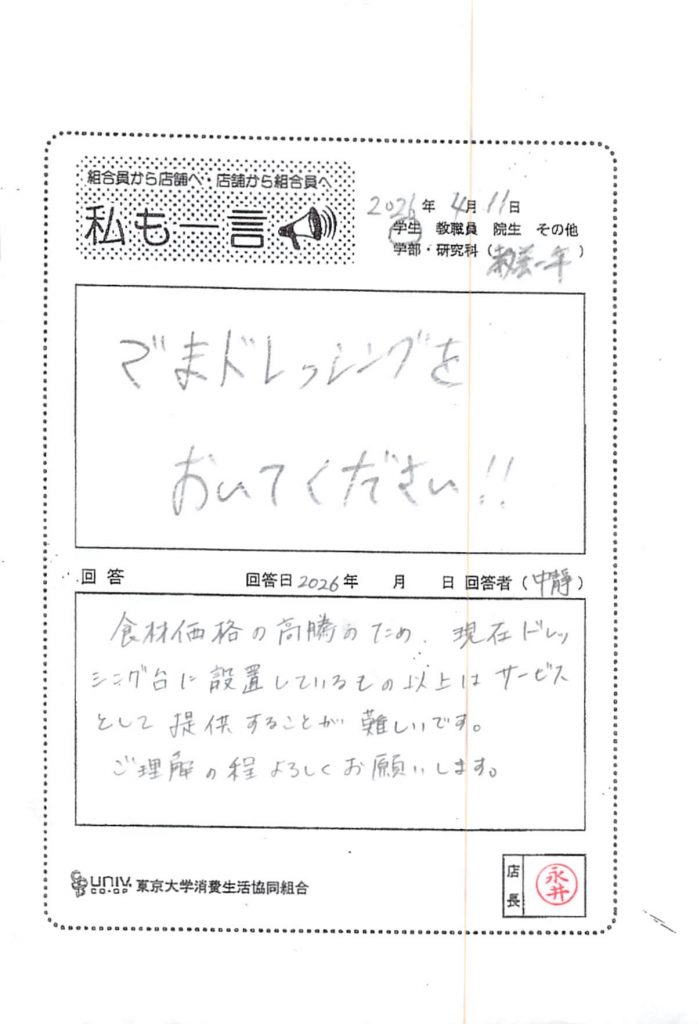 組合員から店舗へ・店舗から組合員へ
私も一言
2026年 4月11日
学生 教職員 院生 その他
学部・研究科（教養一年）
ごまドレッシングを
おいてください!!
回答 回答日2026年 月 日 回答者（中静）
食材価格の高騰のため、現在ドレッ
シング台に設置しているもの以上はサービス
として提供することが難しいです。
ご理解の程よろしくお願いします。
UNIV. CO-OP 東京大学消費生活協同組合
店長 永井